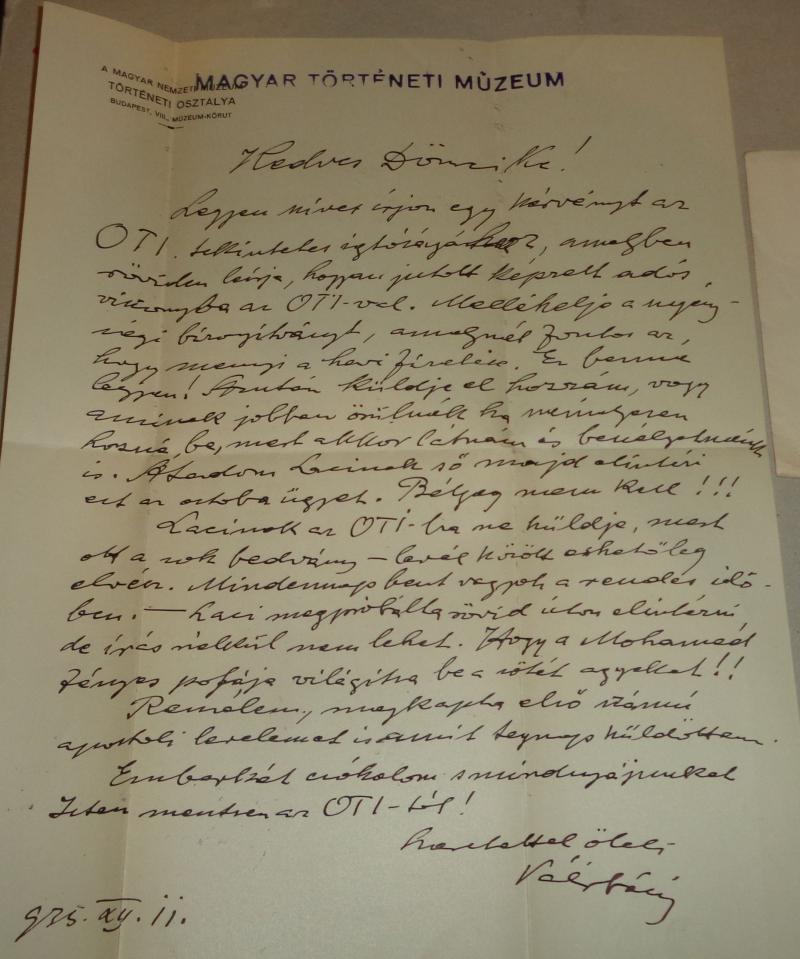 MAGYAR TÖRTÉNETI MÚZEUM
A MAGYAR NEMZETI MÚZEUM
TÖRTÉNETI OSZTÁLYA
BUDAPEST, VIII., MÚZEUM-KÖRUT
Kedves Dömcike!
Legyen szíves írjon egy kérvényt az
OTI. tekintetes igtóságához, amelyben
röviden leírja, hogyan jutott képzelt adós
viszonyba az OTI-val. Mellékelje a
bizonyítványt, amelynél fontos az,
hogy mennyi a havi fizetés. Ez benne
legyen! Azután küldje el hozzám, vagy
aminek jobban örülnék ha személyesen
hozná be, mert akkor látnám és
is. Átadom Lacinak s ő majd elintézi
ezt az ostoba ügyet. Bélyeg nem kell!!!
Lacinak az OTI-ba ne küldje, mert
ott a sok – levél között esetleg
elvész. Mindennap bent vagyok a rendes idő-
ben. — Laci megpróbálta rövid úton elintézni
de írás nélkül nem lehet. Hogy a Mohamed
fényes pofája világítsa be a sötét agyukat!!
Remélem, megkapta első számú
apostoli levelemet is amit tegnap küldöttem.
Emberkét csókolom s mindnyájunkat
Isten mentsen az OTI-tól!
Szeretettel öleli
935. XII. 11.